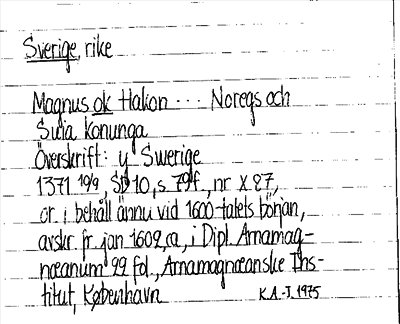 Sverige, rike
Magnus ok Hakon ... Noregs och
Suia konunga
Överskrift: y Swerige
1371 19/9, SD 10, s. 79f., nr X.27,
or. i behåll ännu vid 1600-talets början,
avskr. fr. jan 1602, a, i Dipl. Arnamag-
næanum 22 fol., Arnamagnæanske Ins-
titut, København K.A.-J. 1975